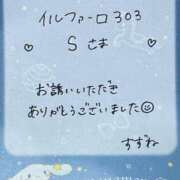 イルファーロ303
♡ Sさま ♡
お誘いいただき
ありがとうございました☺
すずね